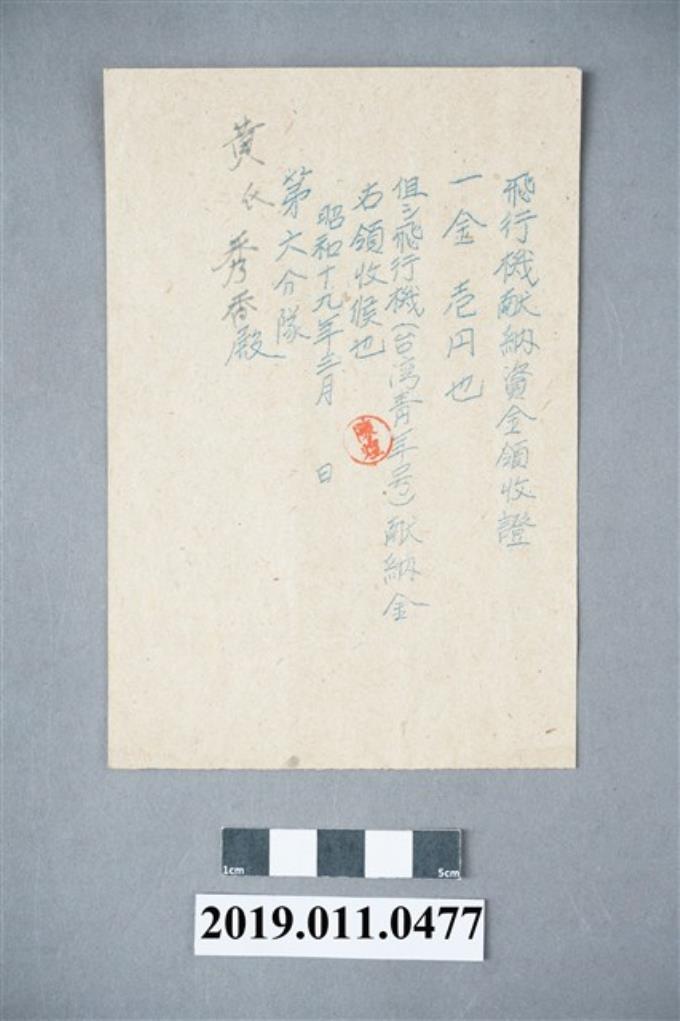 飛行機献納資金領收證
一金壱円也
但シ飛行機(台湾青年号)献納金
右領收候也
昭和十九年三月 日
第六分隊
黄氏秀香殿
陳煌
1cm 5cm
2019.011.0477